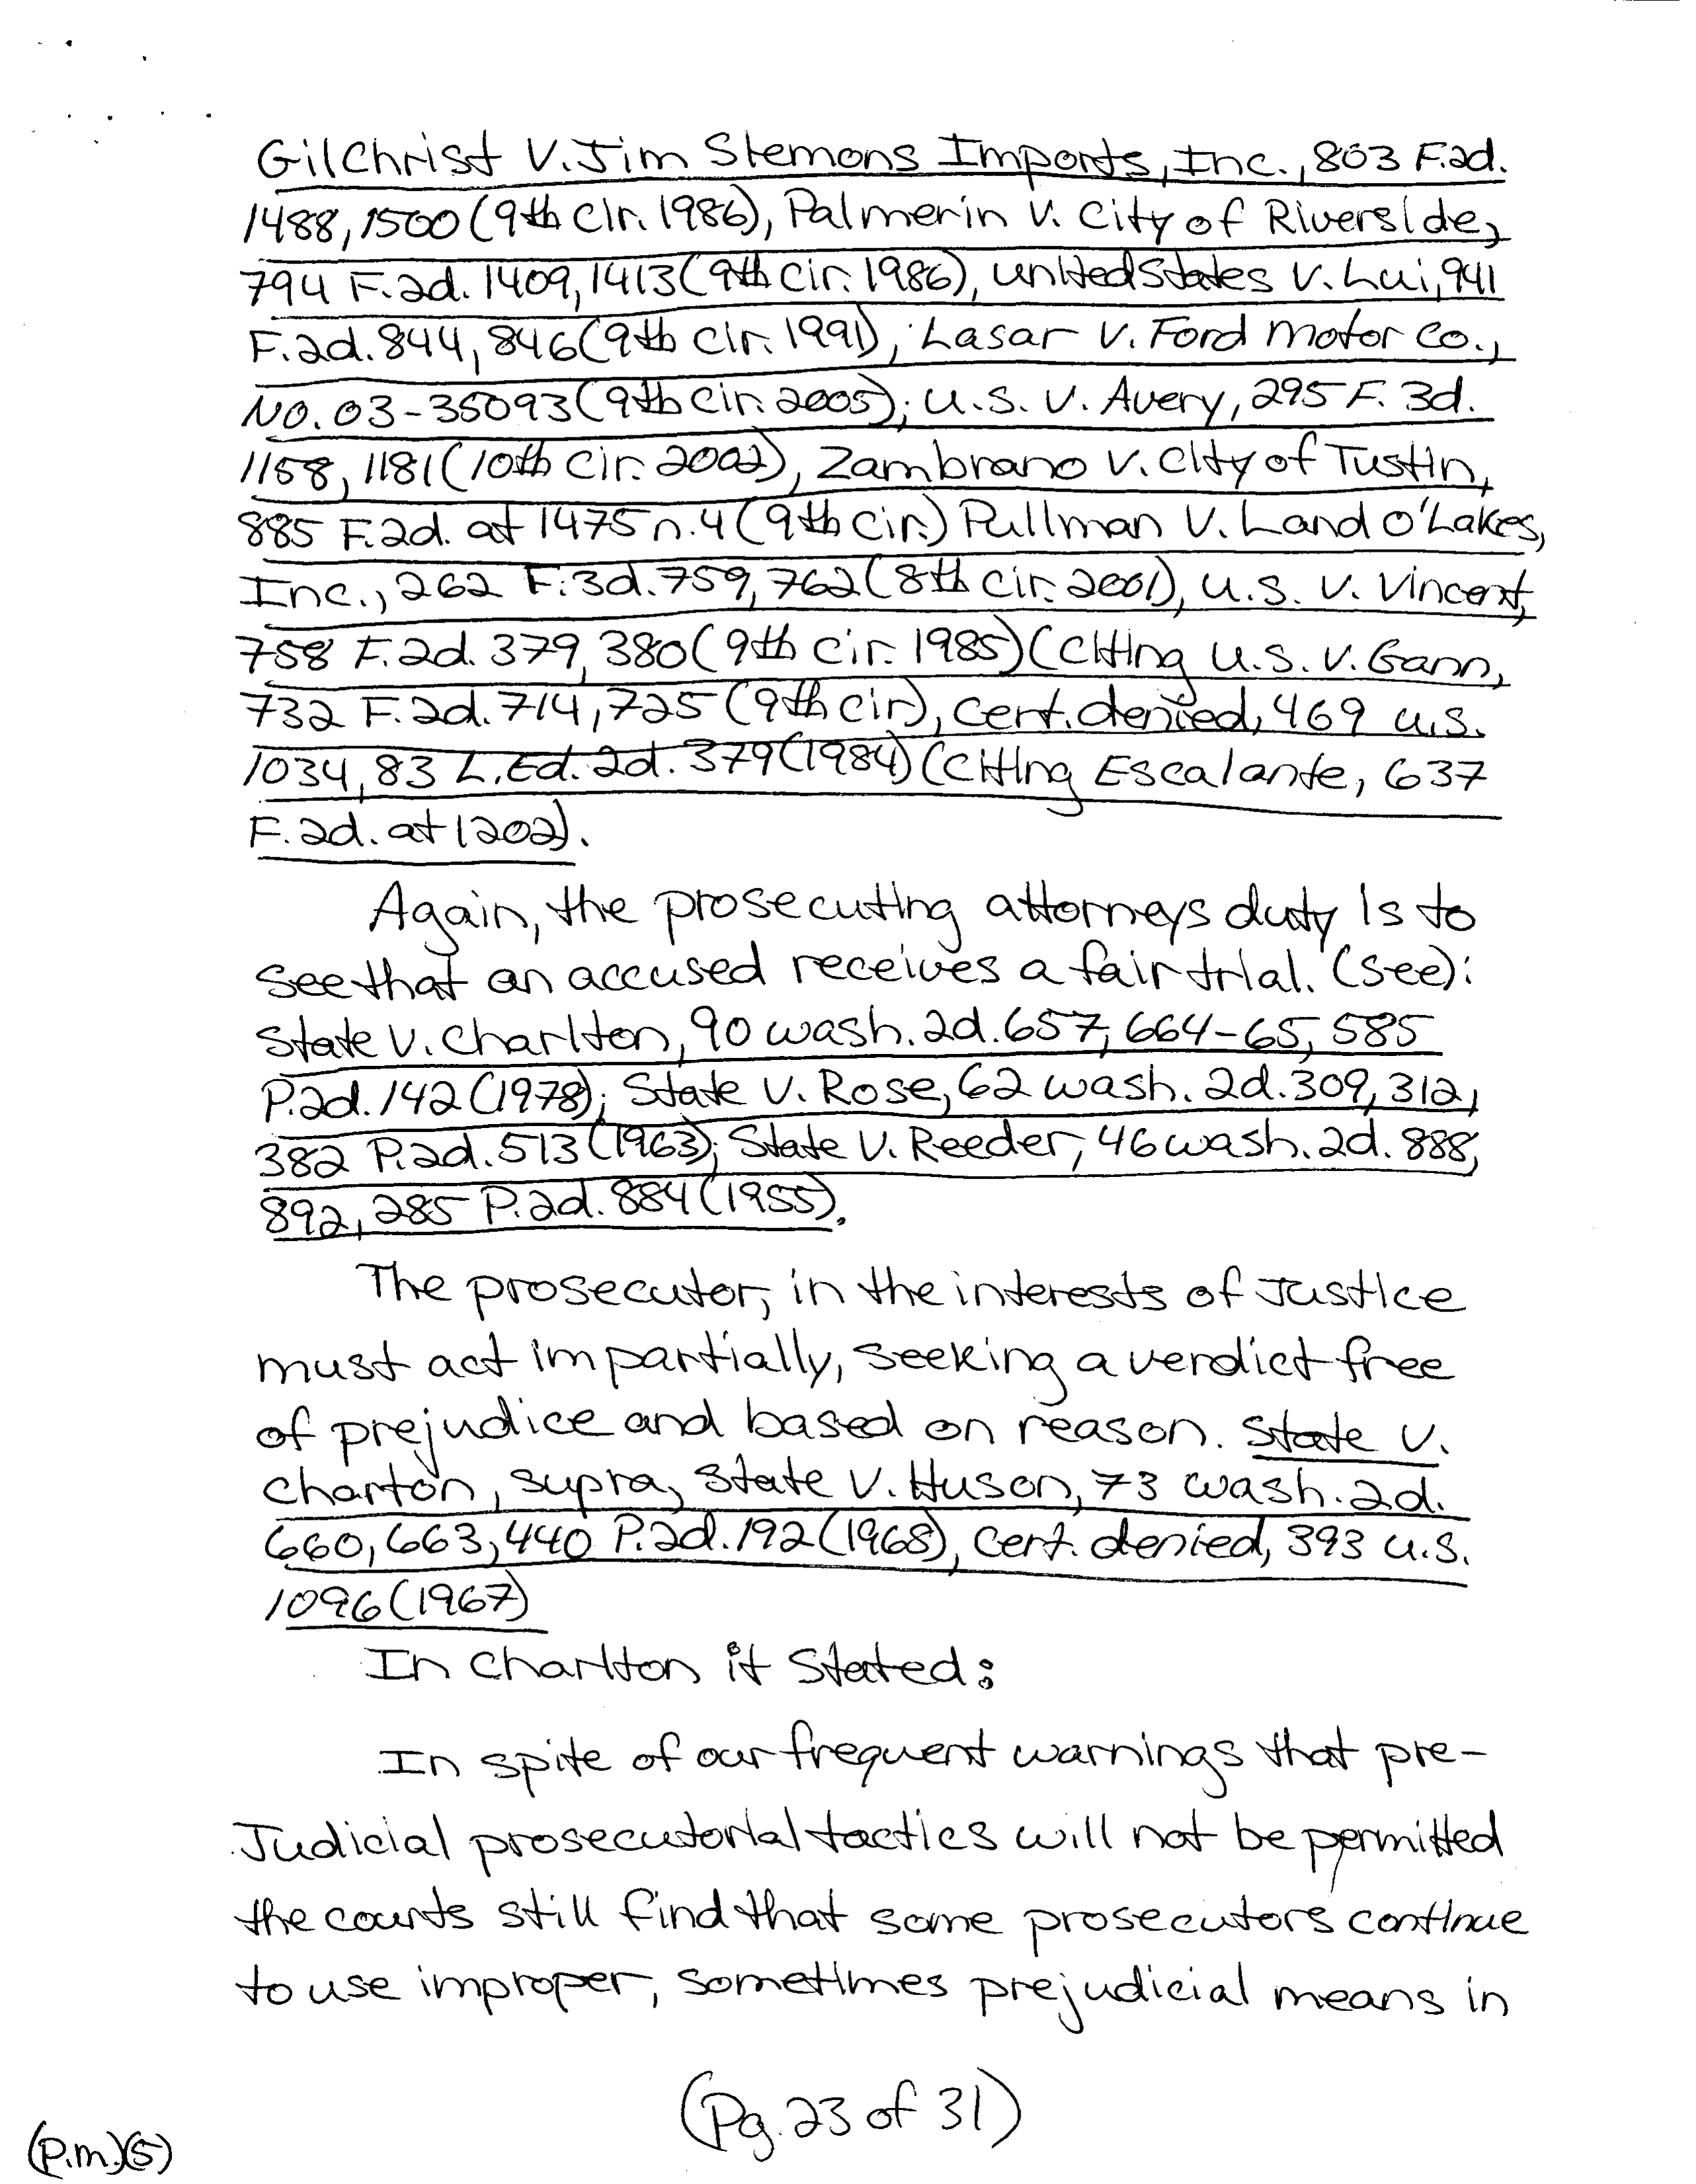 Gilchrist V. Jim Slemons Imports, Inc., 803 F.2d.
1488, 1500 (9th Cir. 1986), Palmerin V. City of Riverside,
794 F.2d. 1409, 1413 (9th Cir. 1986), United States V. Lui, 941
F.2d. 844, 846 (9th Cir. 1991); Lasar V. Ford Motor Co.,
NO. 03-35093 (9th Cir. 2005); U.S. V. Avery, 295 F. 3d.
1158, 1181 (10th Cir. 2002), Zambrano V. City of Tustin,
885 F.2d. at 1475 n. 4 (9th Cir.) Pullman V. Land O'Lakes,
Inc., 262 F. 3d. 759, 762 (8th Cir. 2001), U.S. V. Vincent,
758 F.2d. 379, 380 (9th Cir. 1985) (Citing U.S. V. Gann,
732 F.2d. 714, 725 (9th Cir), Cert. denied, 469 U.S.
1034, 83 L.Ed. 2d. 379 (1984) (Citing Escalante, 637
F.2d. at 1202).
Again, the prosecuting attorneys duty is to
see that an accused receives a fair trial. (see):
State V. Charlton, 90 Wash. 2d. 657, 664-65, 585
P.2d. 142 (1978); State V. Rose, 62 Wash. 2d. 309, 312,
382 P.2d. 513 (1963); State V. Reeder, 46 Wash. 2d. 888,
892, 285 P.2d. 884 (1955).
The prosecutor, in the interests of Justice
must act impartially, seeking a verdict free
of prejudice and based on reason. State V.
Charton, supra, State V. Huson, 73 Wash. 2d.
660, 663, 440 P.2d. 192 (1968), Cert. denied, 393 U.S.
1096 (1967)
In Charlton it Stated:
In spite of our frequent warnings that pre-
Judicial prosecutorial tactics will not be permitted
the courts still find that some prosecutors continue
to use improper, sometimes prejudicial means in
(Pg. 23 of 31)
(P.m.)(5)